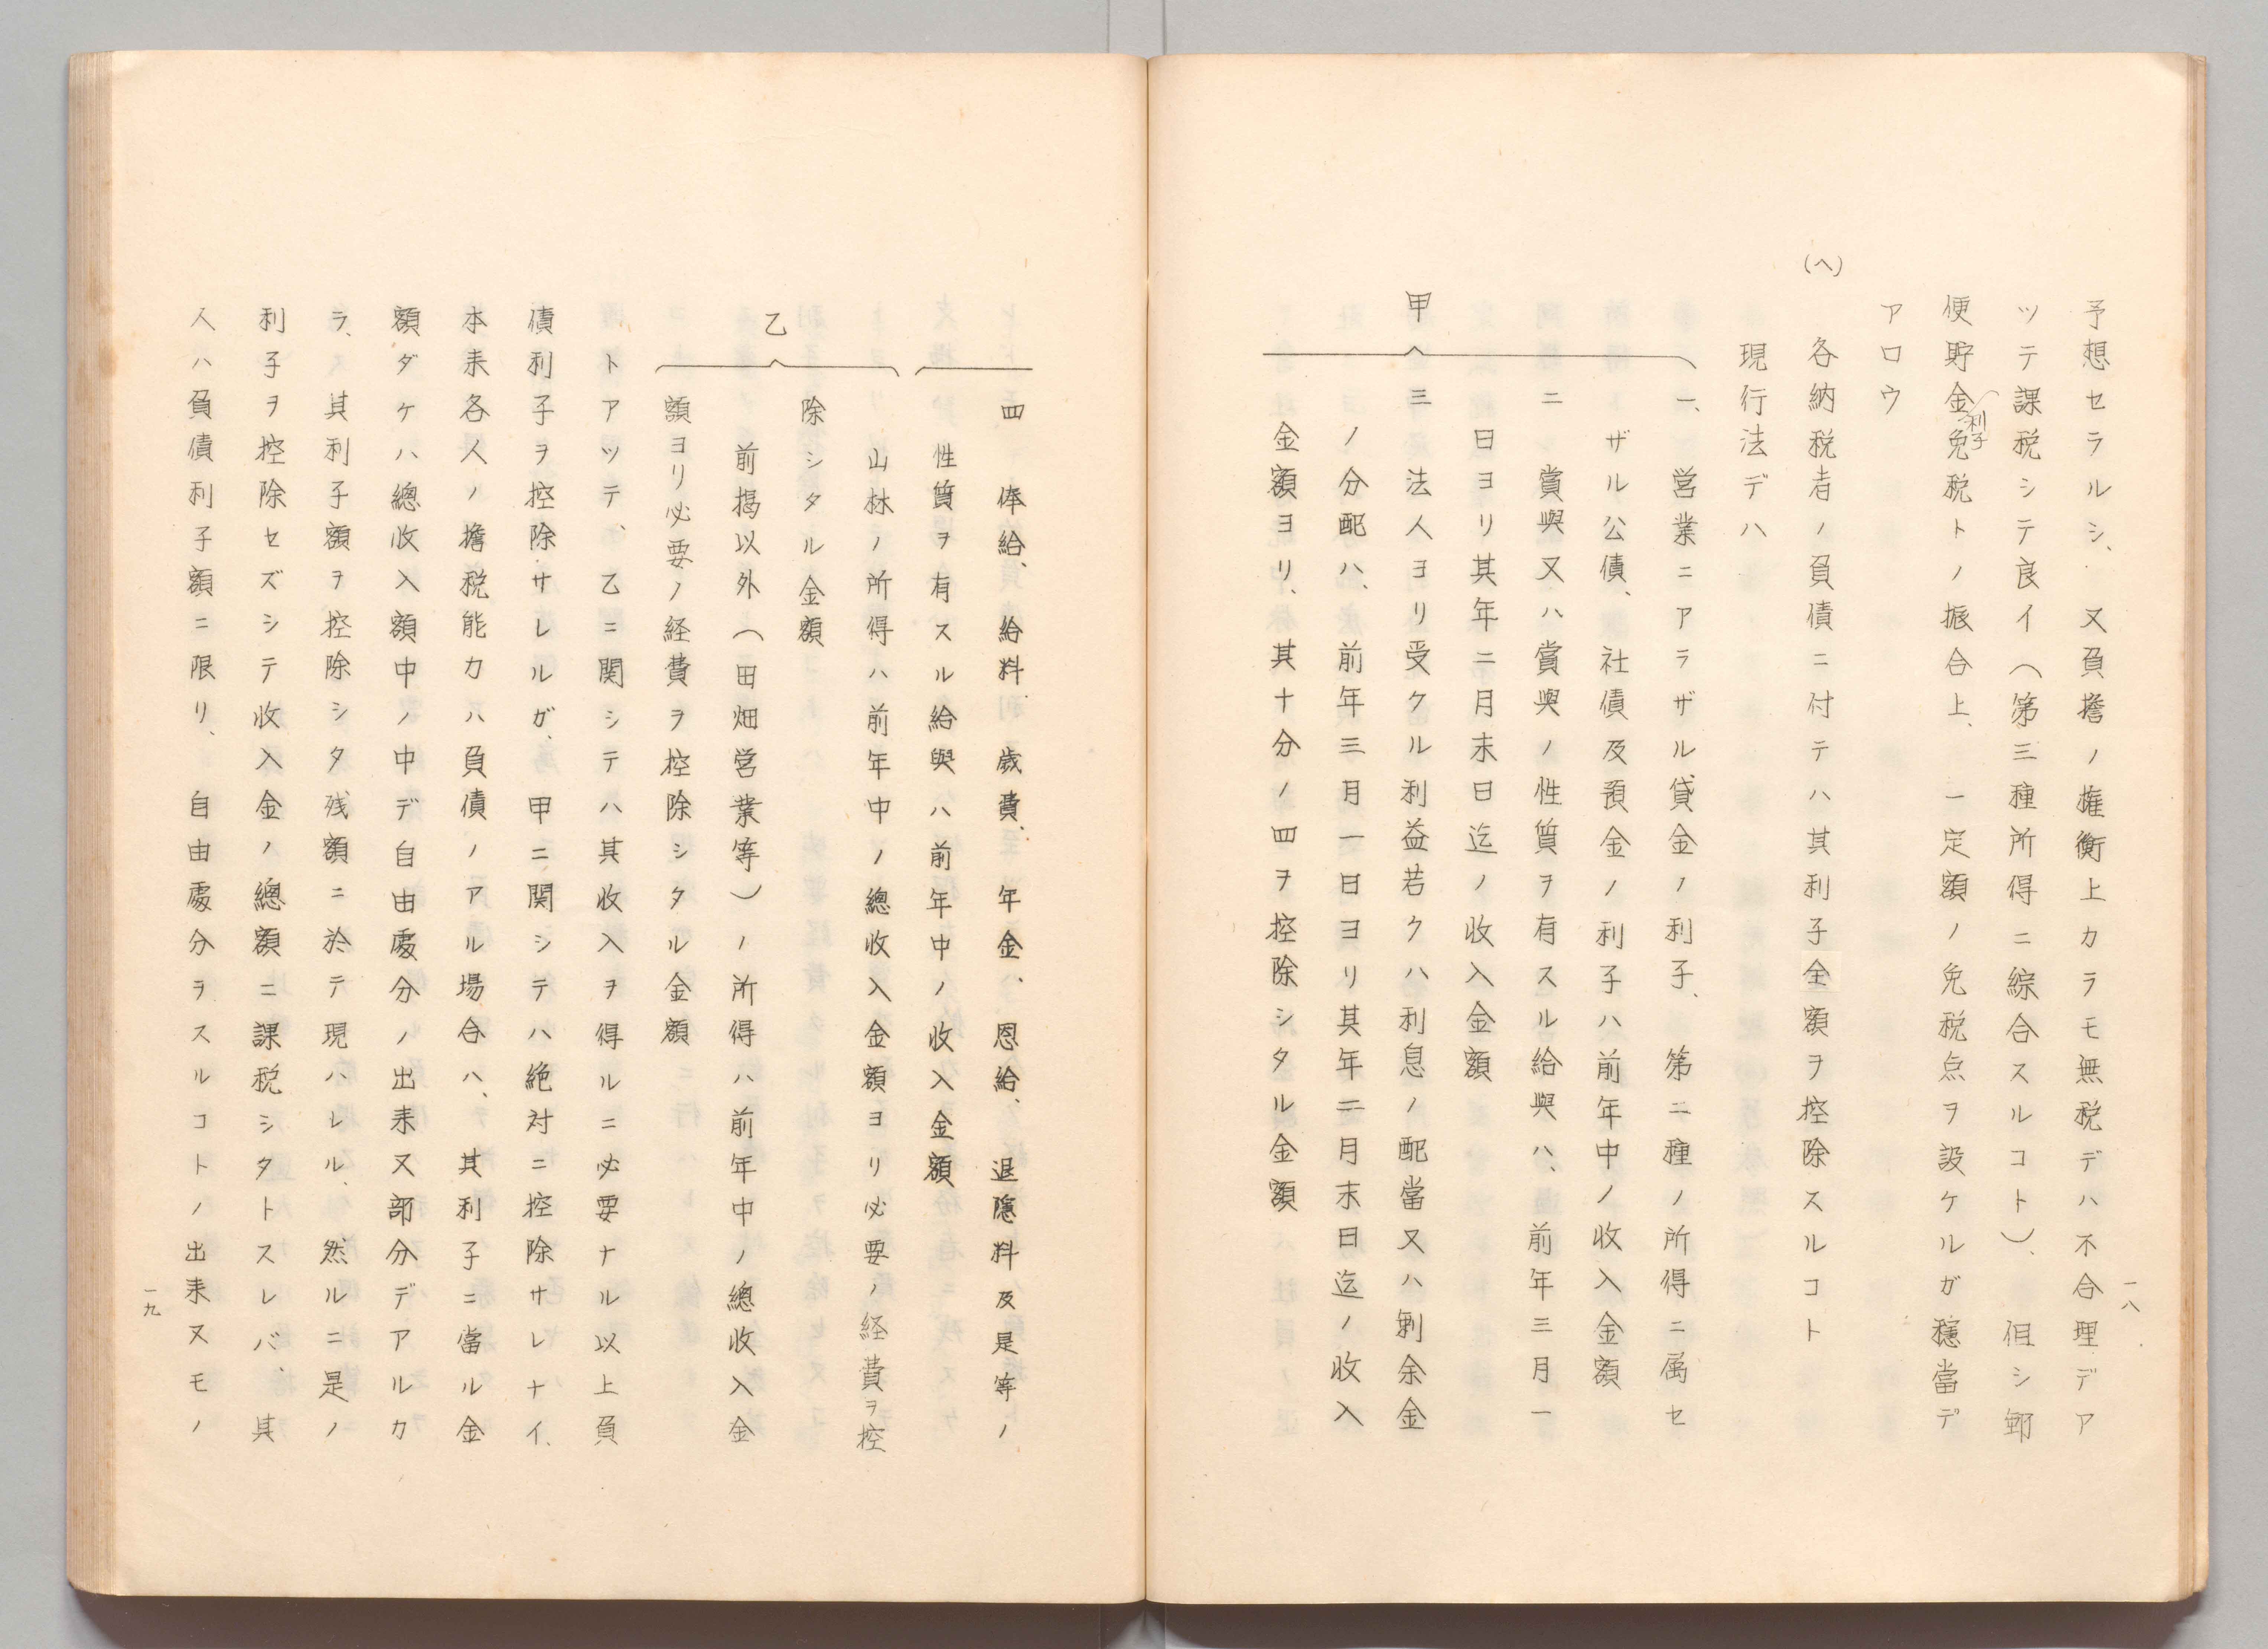 一八
予想セラルシ、又負擔ノ権衡上カラモ無税デハ不合理デア
ツテ課税シテ良イ(第三種所得ニ綜合スルコト)、但シ郵
便貯金利子免税トノ振合上、一定額ノ免税点ヲ設ケルガ穏當デ
アロウ
(ヘ) 各納税者ノ負債ニ付テハ其利子全額ヲ控除スルコト
現行法デハ
甲
一、営業ニアラザル貸金ノ利子、第二種ノ所得ニ属セ
ザル公債、社債及預金ノ利子ハ前年中ノ收入金額
二 賞與又ハ賞與ノ性質ヲ有スル給與ハ、前年三月一
日ヨリ其年二月末日迄ノ收入金額
三 法人ヨリ受クル利益若クハ利息ノ配當又ハ剰余金
ノ分配ハ、前年三月一日ヨリ其年二月末日迄ノ收入
金額ヨリ、其十分ノ四ヲ控除シタル金額
四 俸給、給料、歳費、年金、恩給、退隠料及是等ノ
性質ヲ有スル給與ハ前年中ノ收入金額
乙
山林ノ所得ハ前年中ノ總收入金額ヨリ必要ノ経費ヲ控
除シタル金額
前掲以外(田畑営業等)ノ所得ハ前年中ノ總收入金
額ヨリ必要ノ経費ヲ控除シタル金額
トアツテ、乙ニ関シテハ其收入ヲ得ルニ必要ナル以上負
債利子ヲ控除サレルガ、甲ニ関シテハ絶対ニ控除サレナイ、
本来各人ノ擔税能力ハ負債ノアル場合ハ、其利子ニ當ル金
額ダケハ總收入額中ノ中デ自由處分ノ出来又部分デアルカ
ラ、其利子額ヲ控除シタ残額ニ於テ現ハレル、然ルニ是ノ
利子ヲ控除セズシテ收入金ノ總額ニ課税シタトスレバ、其
人ハ負債利子額ニ限リ、自由處分ヲスルコトノ出来又モノ
一九